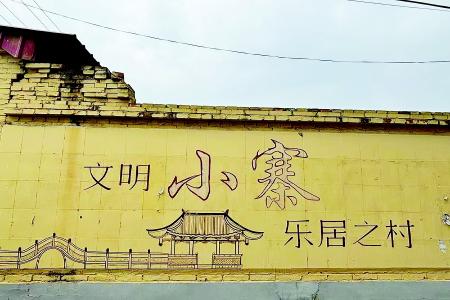 文明小寨
乐居之村